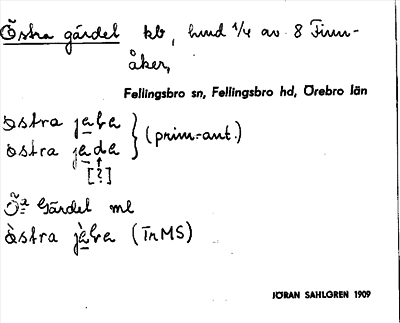 Östra gärdet kb, hmd 1/4 av 8 Finn-
åker,
Fellingsbro sn, Fellingsbro hd, Örebro län
òstra jaba
òstra jada } (prim.-ant.)
[?]
Öa Gärdet ml
òstra jàba (TnMS)
JÖRAN SAHLGREN 1909